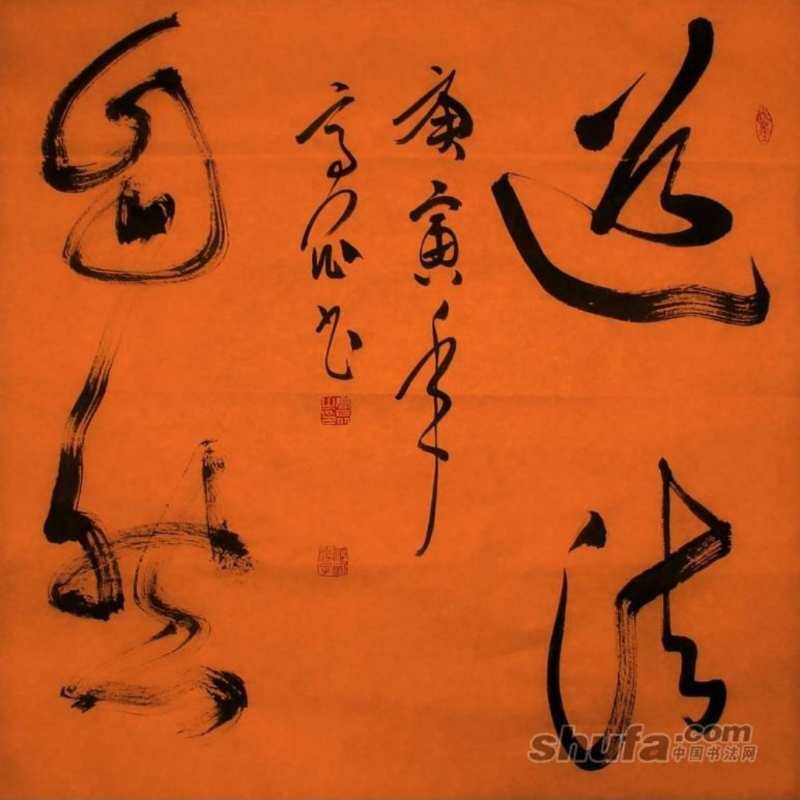 道法
自然
庚寅年
高
书
shufa.com
中国书法网